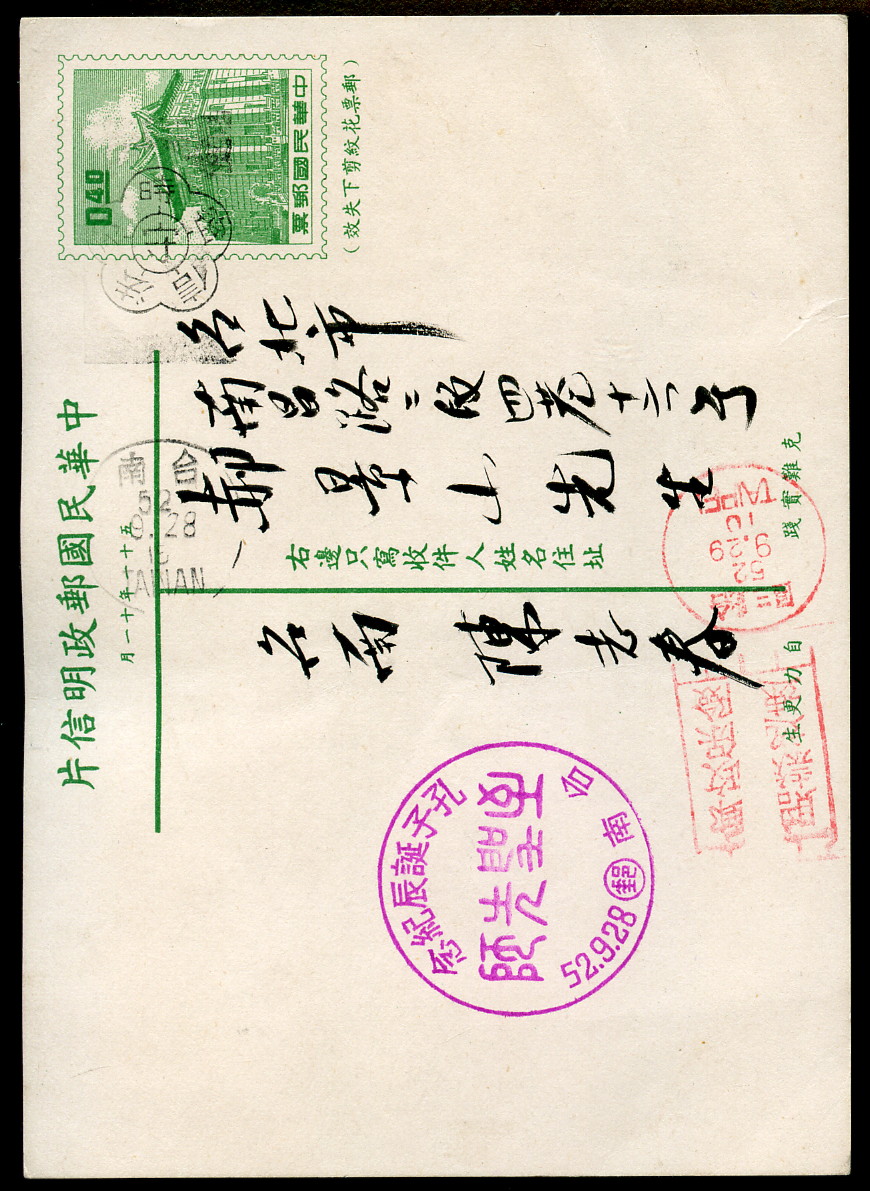 中華民國郵票
0.40
(郵票花紋剪下失效)
中華民國郵政明信片
五十一年十一月
台北市
南昌路二段四巷十二号
郝景山先生
右邊只寫收件人姓名住址
台南 陳志春
克難實踐
自力更生
台南
52
9.28
TAINAN
52
9.29
孔子誕辰紀念
至聖先師
台南 郵
52.9.28